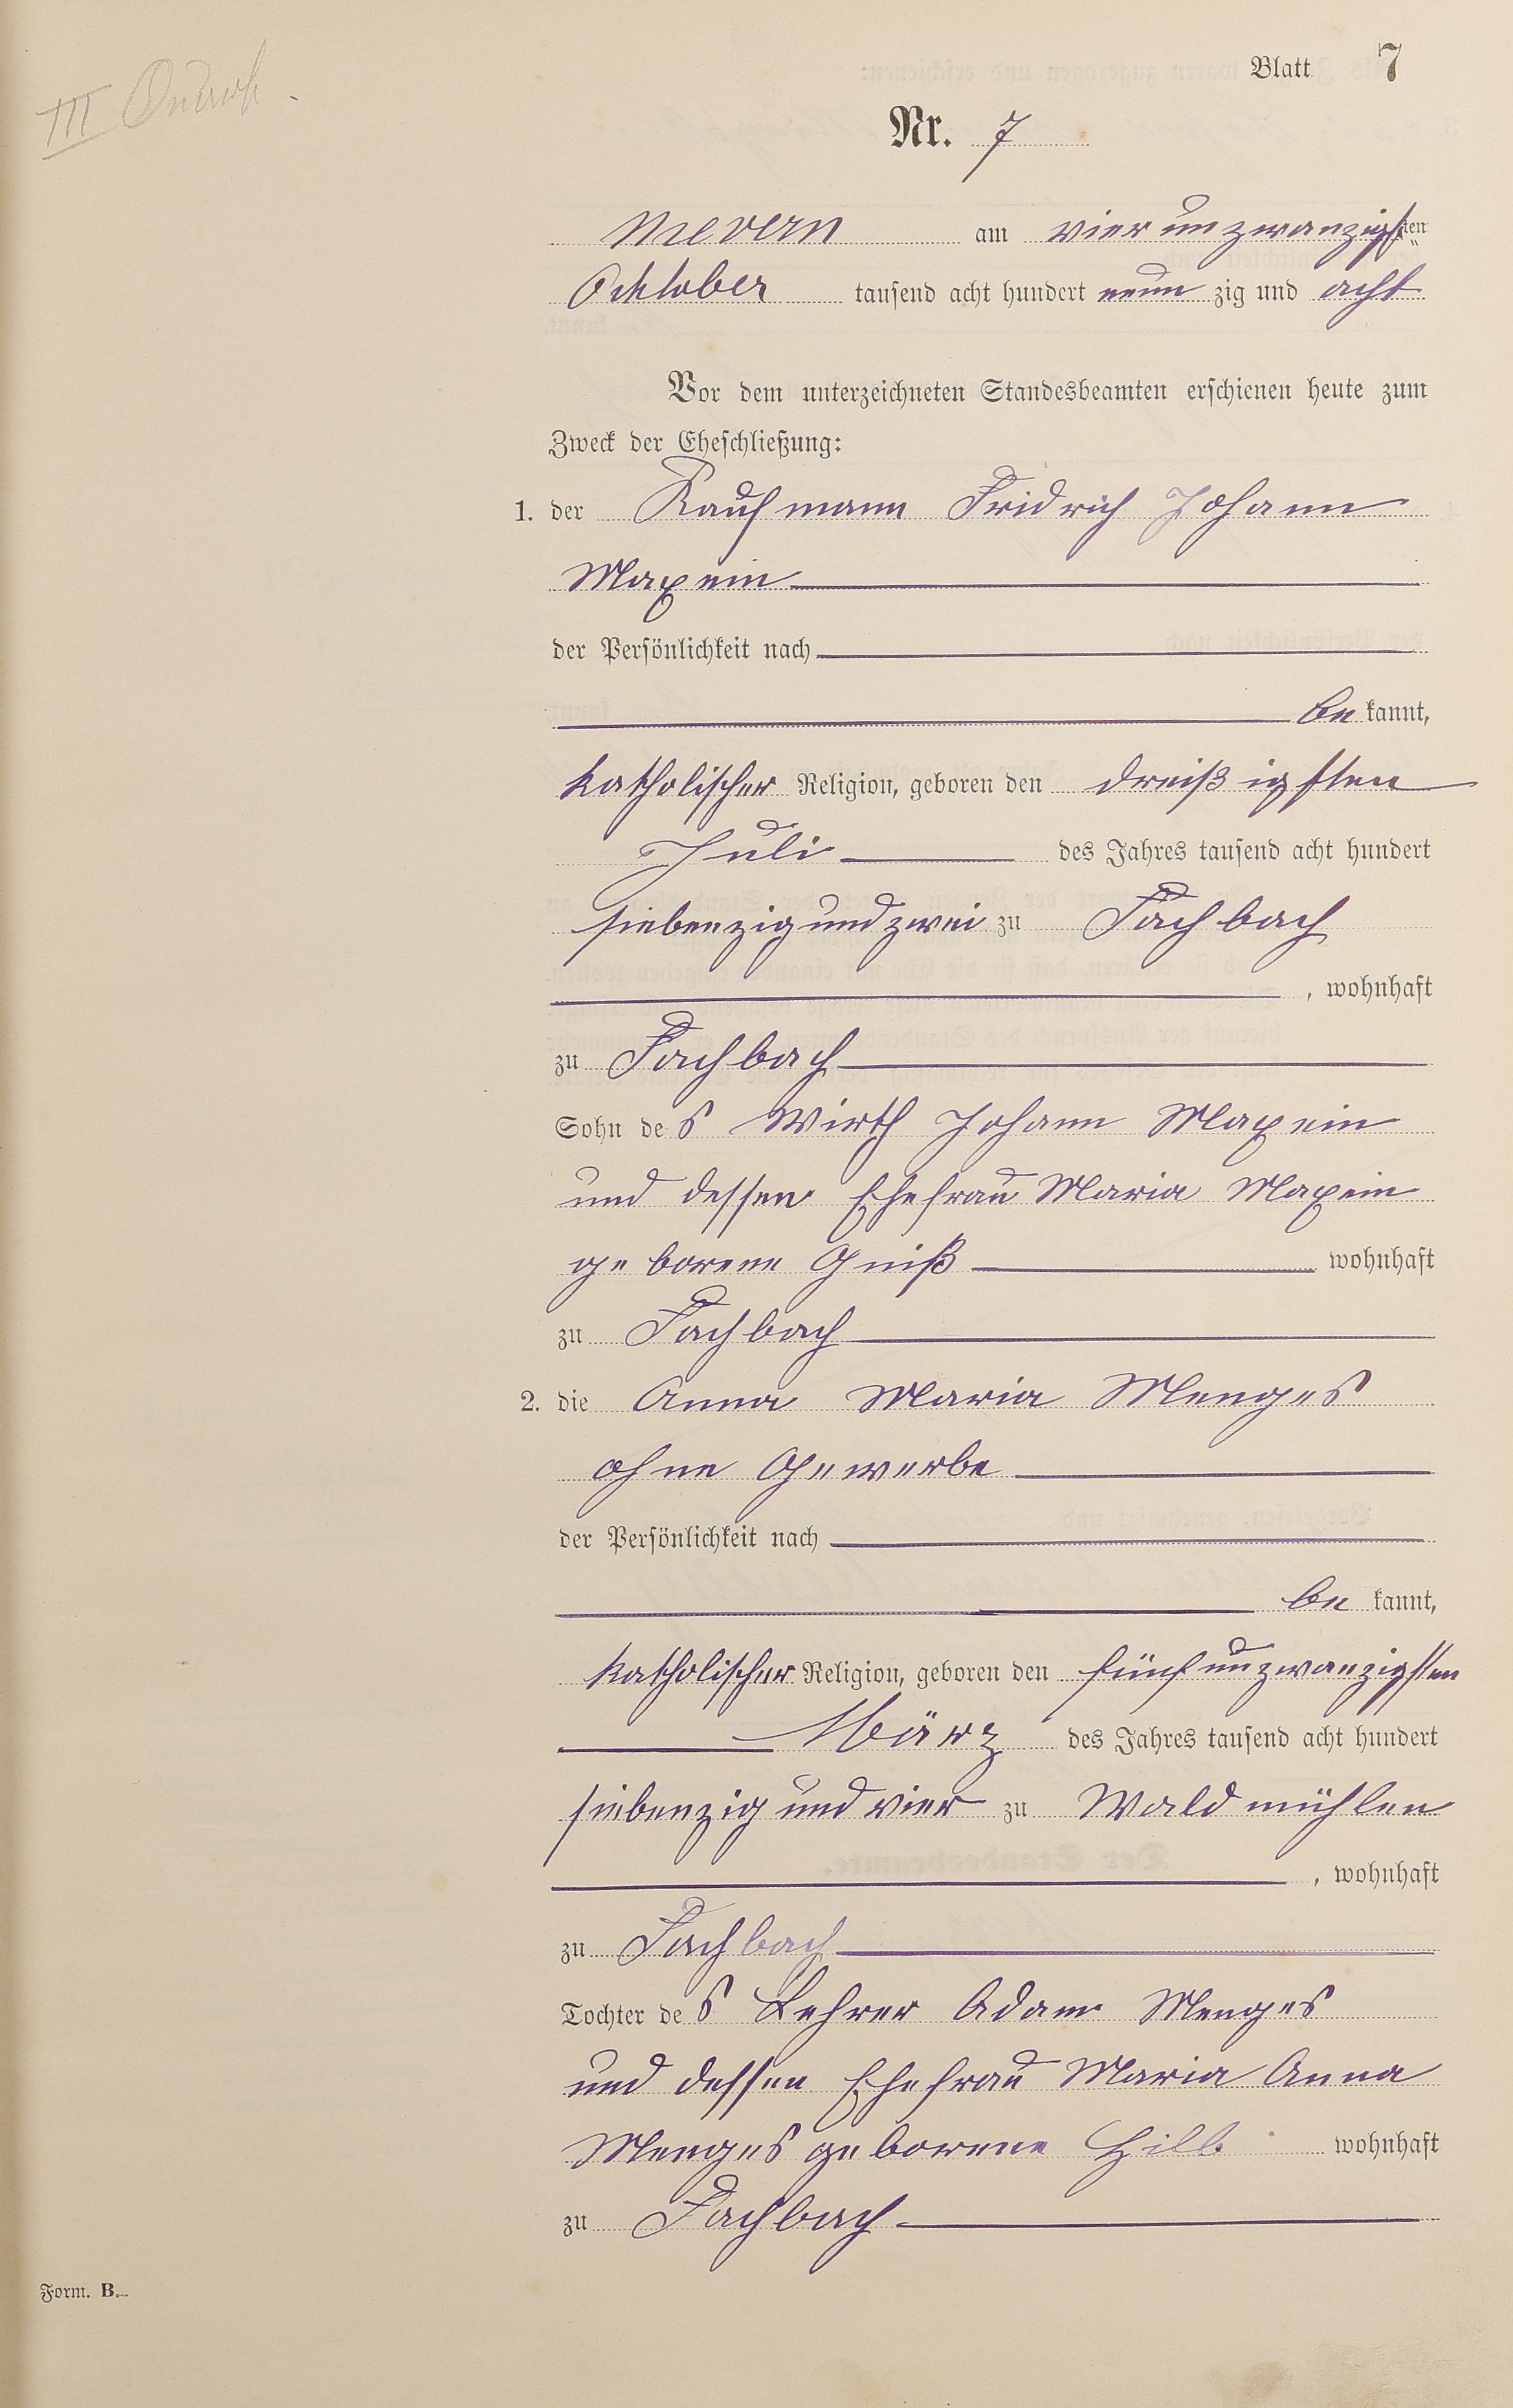 III
Blatt 7
Nr. 7
Mevern am vierunzwanzigsten
Ocktober tausend acht hundert neun zig und acht
Vor dem unterzeichneten Standesbeamten erschienen heute zum
Zweck der Eheschließung:
1. der Kaufmann Fridrich Johann
Maxein
der Persönlichkeit nach
be kannt,
katholischer Religion, geboren den dreißigsten
Juli des Jahres tausend acht hundert
siebenzigundzwei zu Fachbach
, wohnhaft
zu Fachbach
Sohn des Wirth Johann Maxein
und dessen Ehefrau Maria Maxein
geborene Gniß wohnhaft
zu Fachbach
2. die Anna Maria Menges
ohne Gewerbe
der Persönlichkeit nach
be kannt,
katholischer Religion, geboren den fünfunzwanzigsten
März des Jahres tausend acht hundert
siebenzig und vier zu Waldmühlen
, wohnhaft
zu Fachbach
Tochter des Lehrer Adam Menges
und dessen Ehefrau Maria Anna
Menges geborene Hilb wohnhaft
zu Fachbach
Form. B.